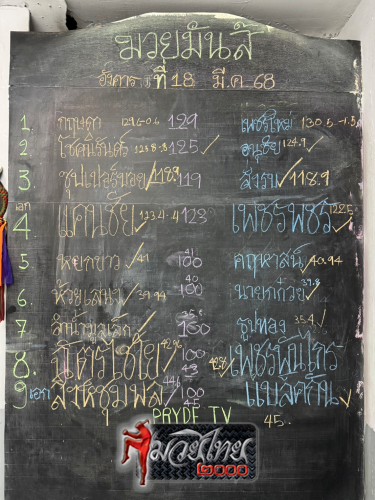 มวยมันส์
อังคาร ที่ 18 มี.ค. 68
1. กฤษดา 129.6-0.6 129 เพชรใหม่ 130.5-1.5
2. โชคนิรันดร์ 125 ✓ อนุชัย 124.9 ✓
3. ซุปเปอร์บอย ✓ 118.9 119 สงรบ ✓ 118.9
เอก
4 แคนชัย 123 เพชรพชร 122.5
5. หยกขาว ✓ 41 41 100 คฤหาสน์ ✓ 40.94
6. ห้วยเสนง ✓ 39.94 40 100 นายกก๋วย 39.8 ✓
7 ลำน้ำมูลเล็ก ✓ 100 ธูปทอง 35.4 ✓
8. มิตรไชโย 100 43 เพชรพันไกร
9 เอก สิงห์ชุมพล 100 45 แบล็คกัน ✓
PRYDE TV 45.
มวยไทย
๒๐๐๐